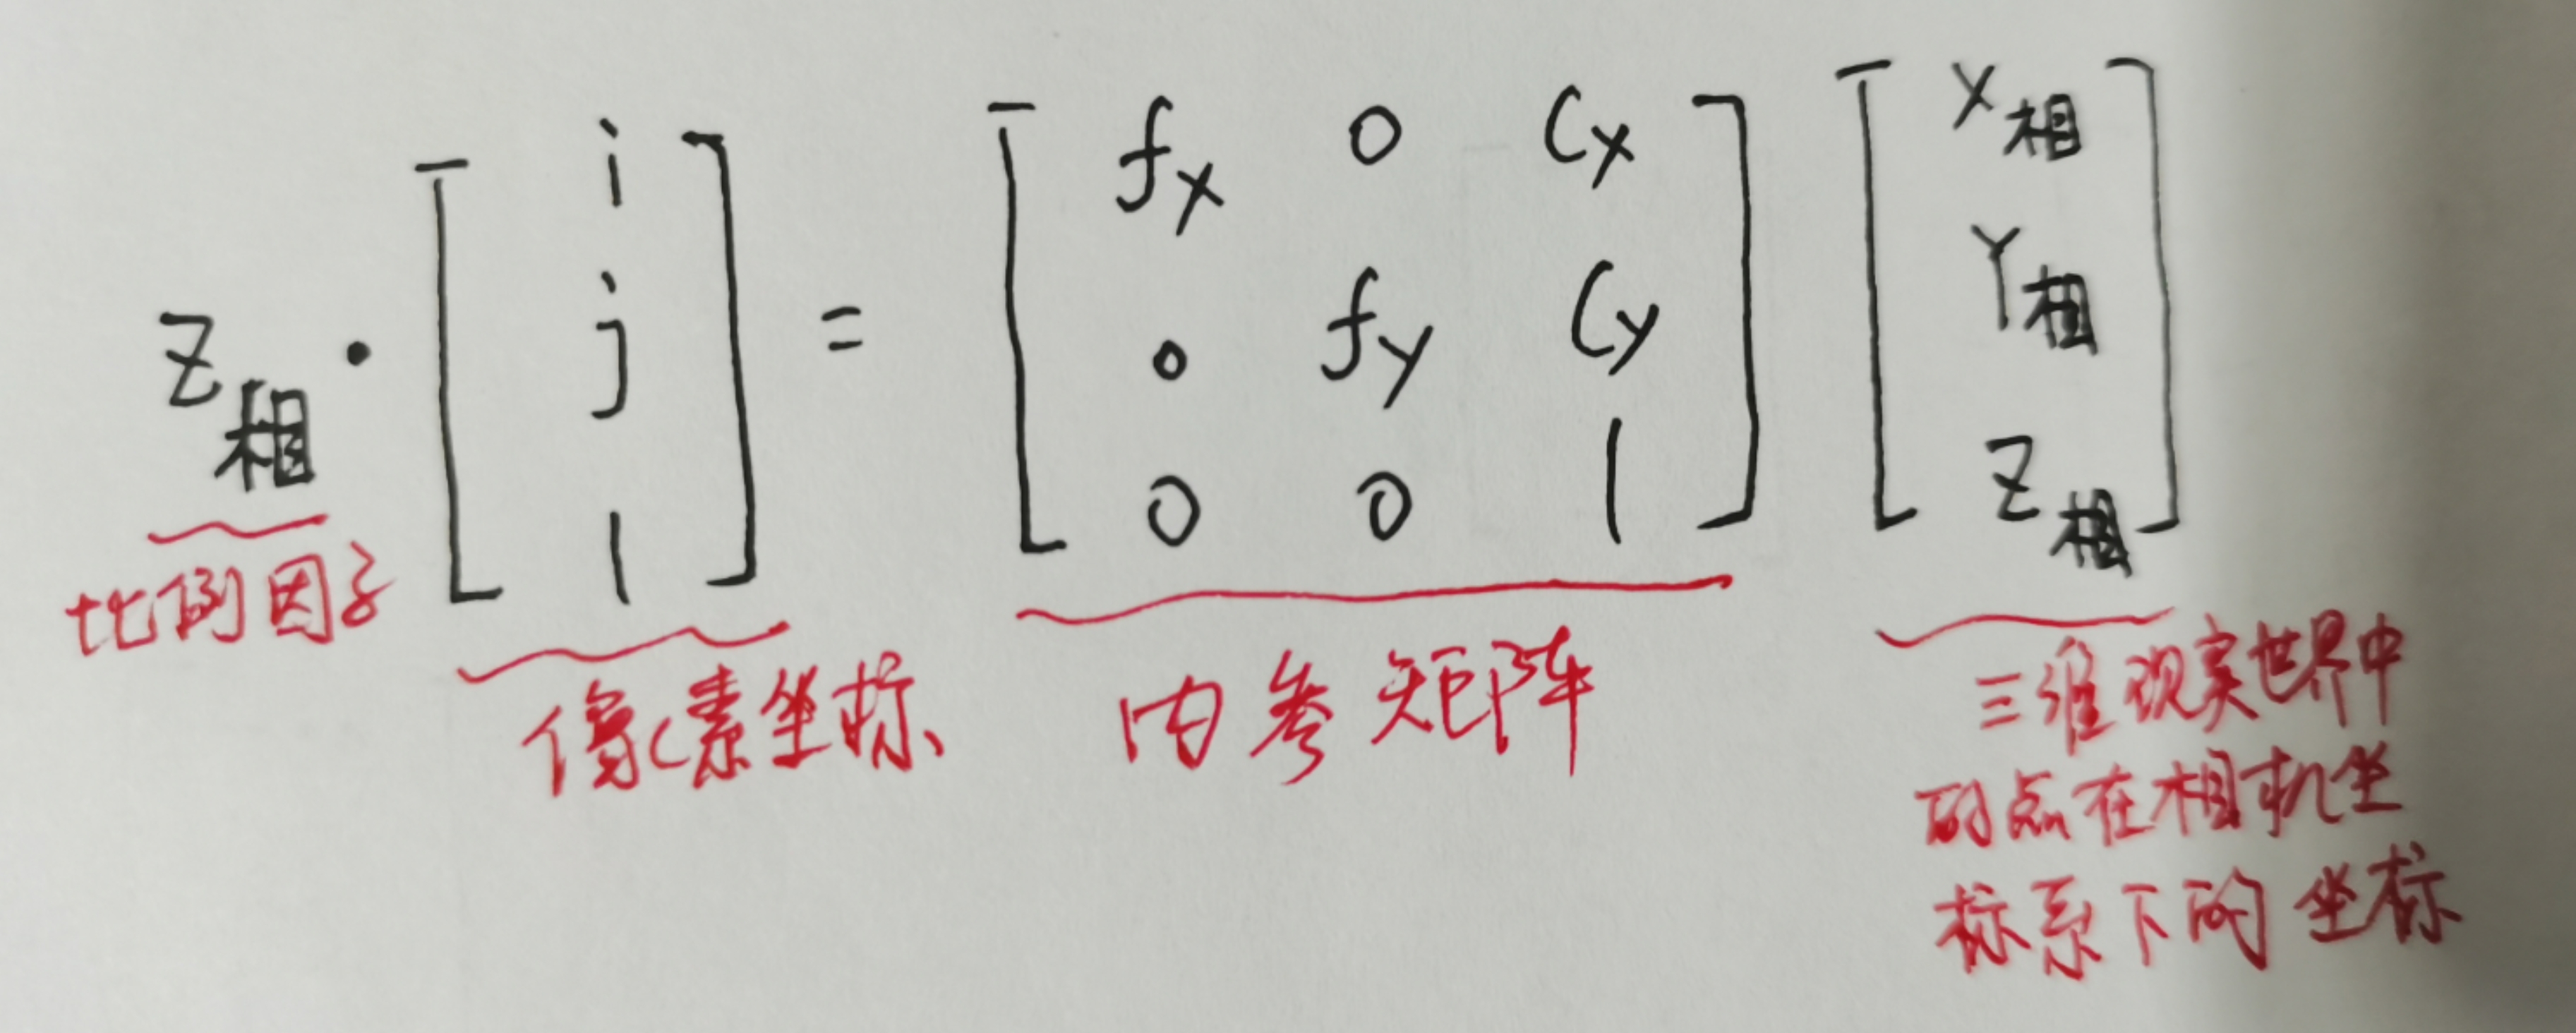 Z相 · [ i j 1 ] = [ fx 0 Cx ; 0 fy Cy ; 0 0 1 ] [ X相 Y相 Z相 ]
比例因子
像素坐标
内参矩阵
三维现实世界中
的点在相机坐
标系下的坐标